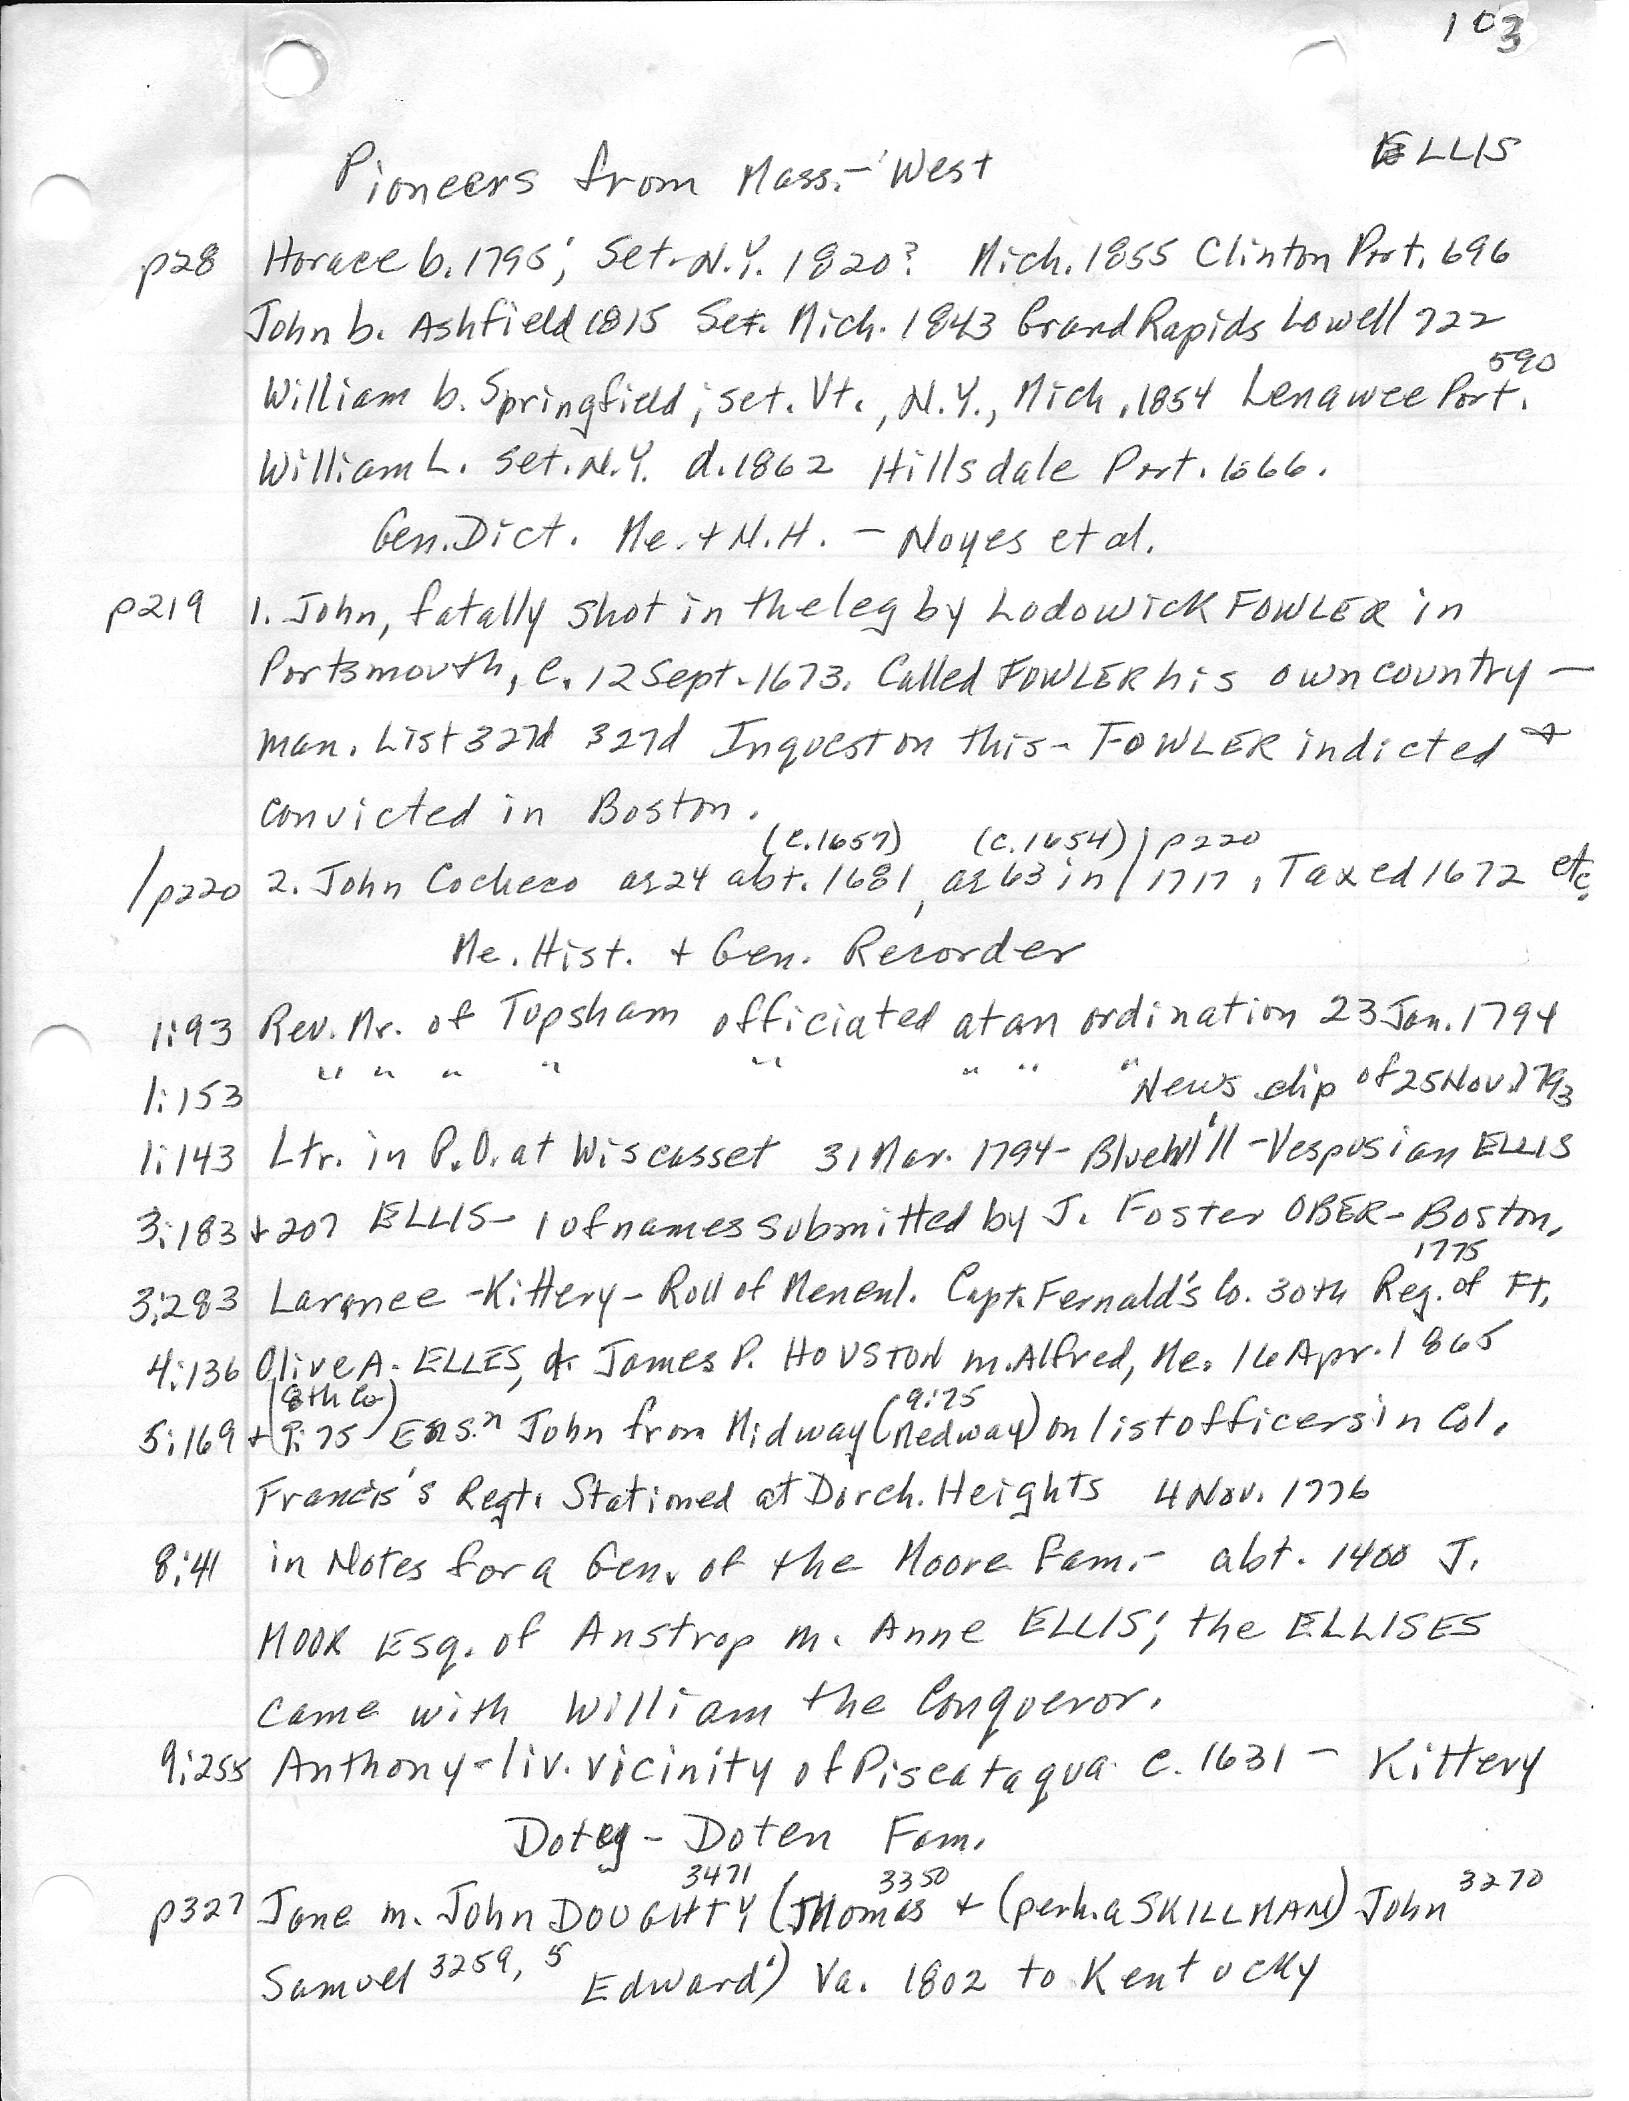 103
ELLIS
Pioneers from Mass.- West
p28 Horace b. 1795; Set. N.Y. 1820? Mich. 1855 Clinton Port. 696
John b. Ashfield 1815 Set. Mich. 1843 Grand Rapids Lowell 722
590
William b. Springfield; set. Vt., N.Y., Mich. 1854 Lenawee Port.
William L. set. N.Y. d. 1862 Hillsdale Port.
Gen. Dict. Me. + N.H. - Noyes et al.
p219 1. John, fatally shot in the leg by Lodowick FOWLER in
Portsmouth, c. 12 Sept. 1673. Called FOWLER his own country-
man. List 327d 327d Inquest on this - FOWLER indicted +
convicted in Boston.
(c.1657) (c.1654) / p220
/p220 2. John Cocheco ag 24 abt. 1681, ag 63 in / 1717, Taxed 1672 etc.
Me. Hist. + Gen. Recorder
1:93 Rev. Mr. of Topsham officiated at an ordination 23 Jan. 1794
1:153 " " " " " " " " News clip of 25 Nov 1793
1:143 Ltr. in P.O. at Wiscasset 31 Mar. 1794 - Bluehill - Vespusian ELLIS
3:183 + 207 ELLIS - 1 of names submitted by J. Foster OBER - Boston.
1775
3:283 - Kittery - Roll of Men enl. Capt. Fernald's Co. 30th Reg. of Ft.
4:136 Olive A. ELLES, & James P. HOUSTON m. Alfred, Me. 16 Apr. 1865
(8th Co) 9:75
5:169 + 9:75 Ensn John from Midway (Medway) on list officers in Col.
Francis's Regt. Stationed at Dorch. Heights 4 Nov. 1776
8:41 in Notes for a Gen. of the Moore Fam. - abt. 1400 J.
MOOR Esq. of Anstrop m. Anne ELLIS; the ELLISES
came with William the Conqueror.
9:255 Anthony - liv. vicinity of Piscataqua c. 1631 - Kittery
Doty - Doten Fam.
3471 3350 3270
p327 Jane m. John DOUGHTY (Thomas + (perh. a SKILLMAN) John
Samuel 3259, 5 Edward') Va. 1802 to Kentucky